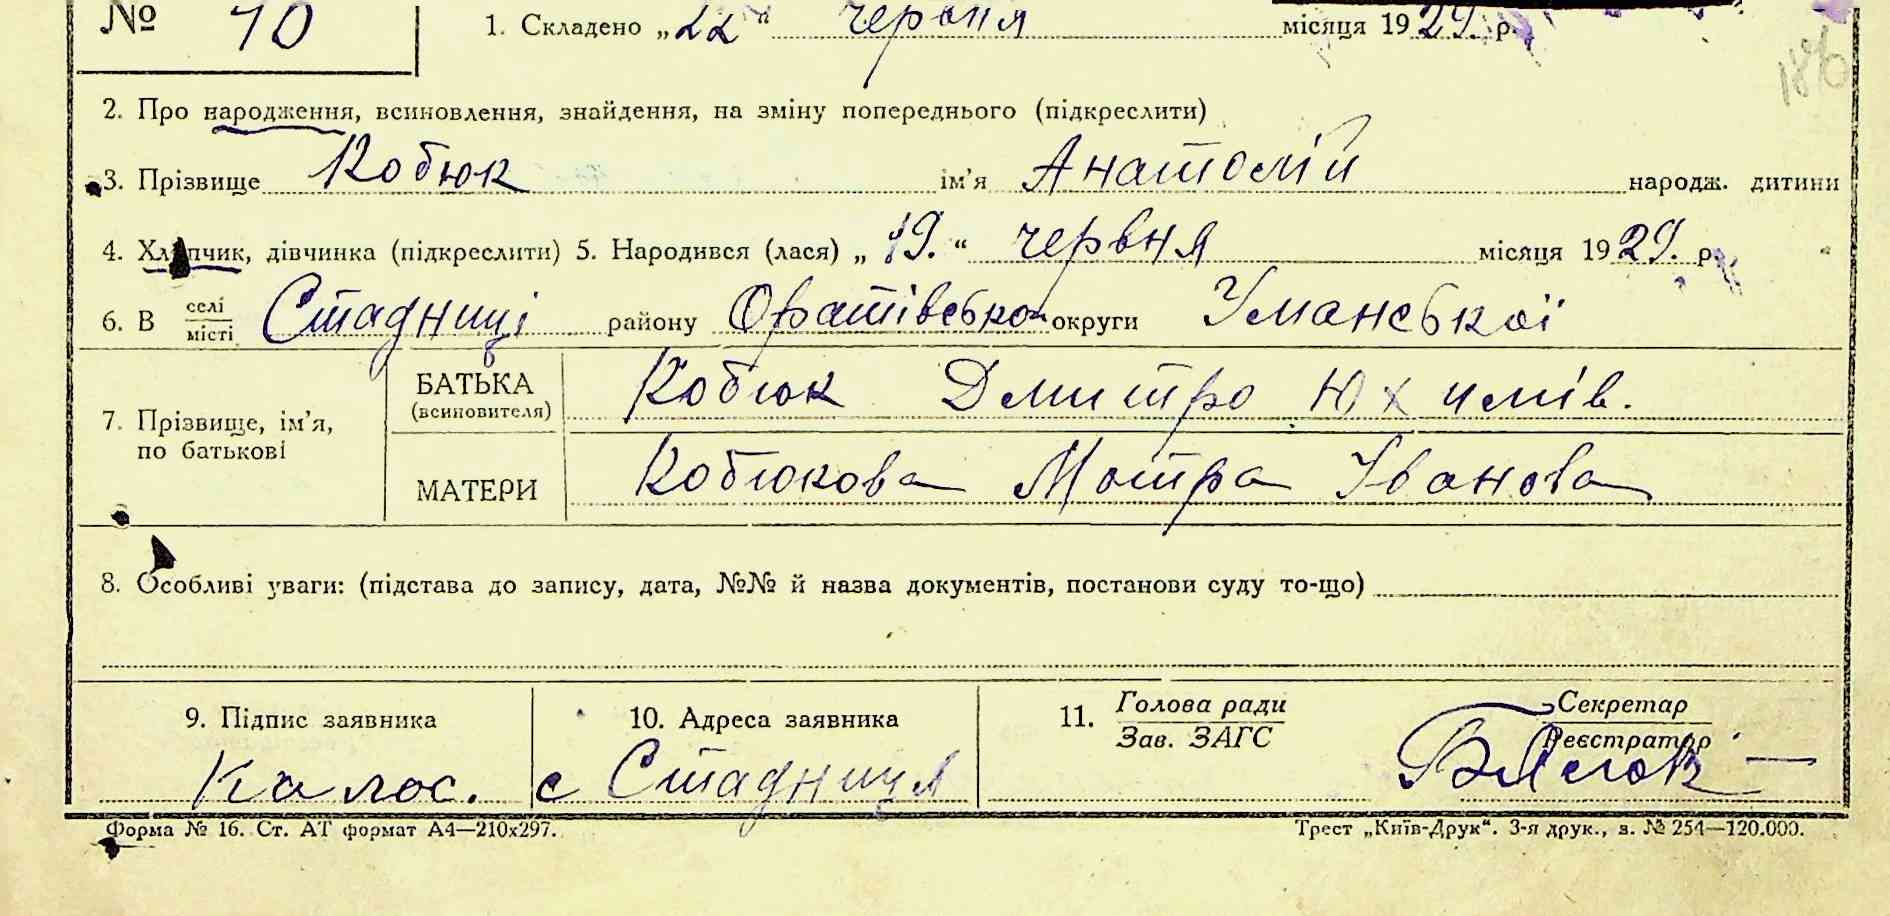 № 10 1. Складено „22“ червня місяця 1929. р.
2. Про народження, всиновлення, знайдення, на зміну попереднього (підкреслити)
3. Прізвище Кобюк ім’я Анатолій народж. дитини
4. Хлопчик, дівчинка (підкреслити) 5. Народився (лася) „19.“ червня місяця 1929. р.
6. В селі/місті Стадниці району Оратівсько округи Уманської
7. Прізвище, ім’я, по батькові
БАТЬКА (всиновителя) Кобюк Дмитро Юхимів.
МАТЕРИ Кобюкова Мотра Іванова
8. Особливі уваги: (підстава до запису, дата, №№ й назва документів, постанови суду то-що)
9. Підпис заявника 10. Адреса заявника 11. Голова ради Секретар
Зав. ЗАГС Реєстратор
с Стадниця
Форма № 16. Ст. АТ формат А4—210x297. Трест „Київ-Друк“. 3-я друк., з. № 254—120.000.